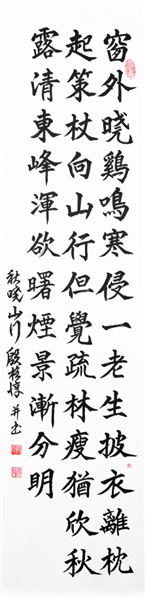 窗外晓鷄鳴寒侵一老生披衣離枕
起策杖向山行但覺疏林瘦猶欣秋
露清東峰渾欲曙煙景漸分明
秋晓山行 殷梓惇 并书